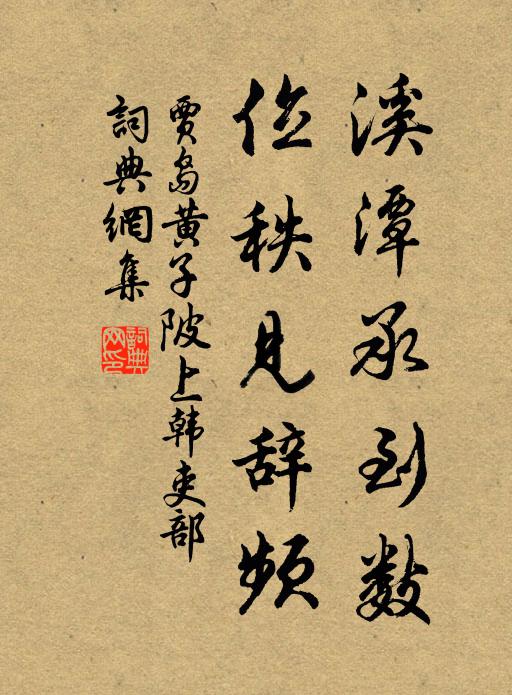 溪潭承到数
位秩见辞频
贾岛黄子陂上韩吏部
詞典網集
詞典网印